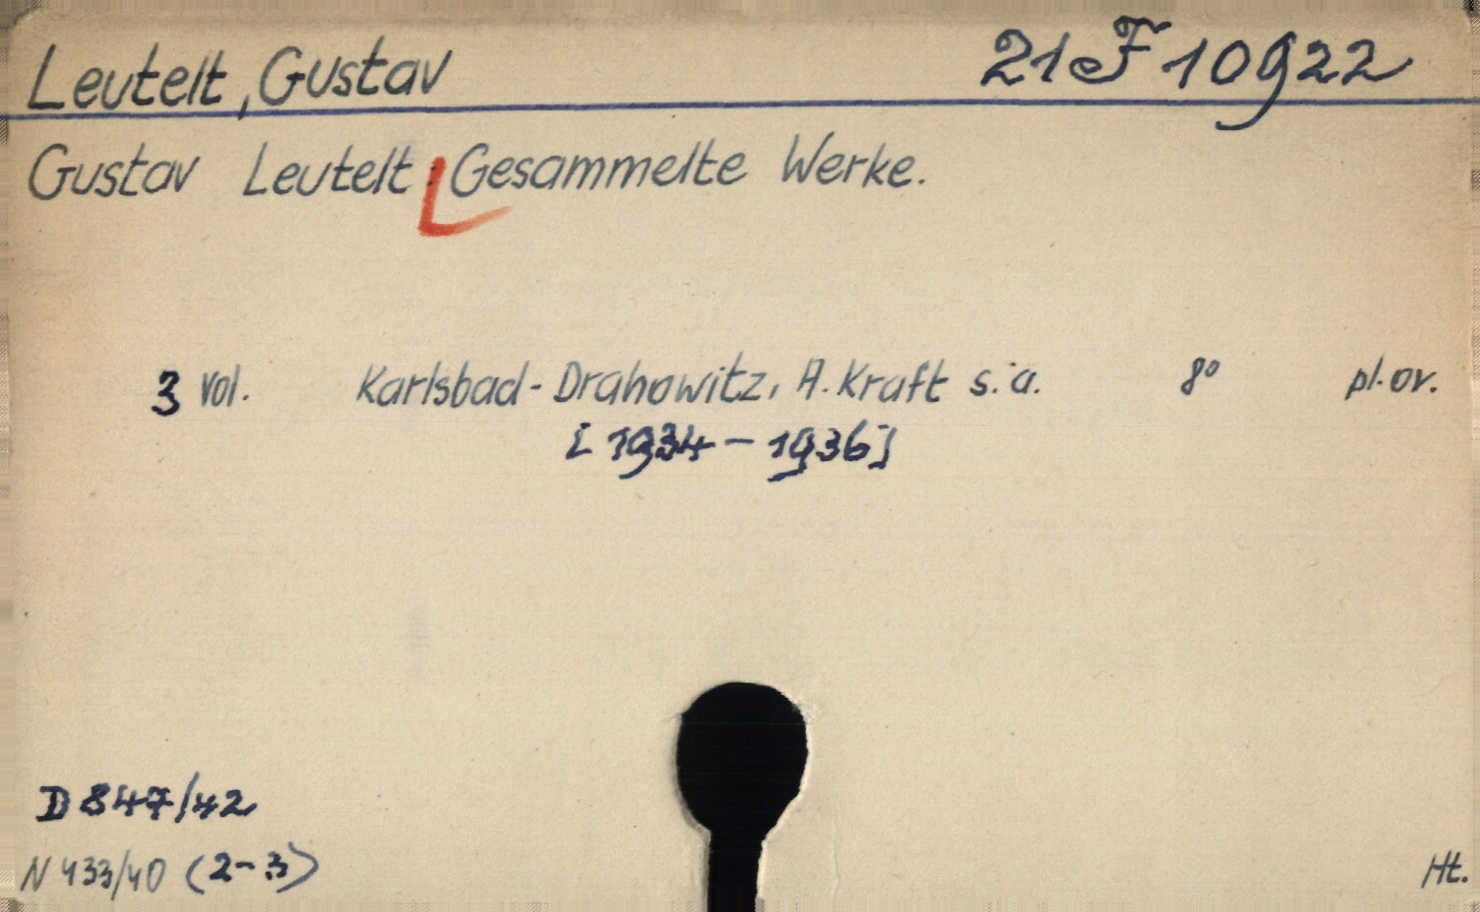 Leutelt, Gustav 21 F 10922
Gustav Leutelt: Gesammelte Werke.
3 vol. Karlsbad-Drahowitz, A. Kraft s.a. 8° pl. ov.
[1934-1936]
D 847/42
N 433/40 (2-3)
Ht.